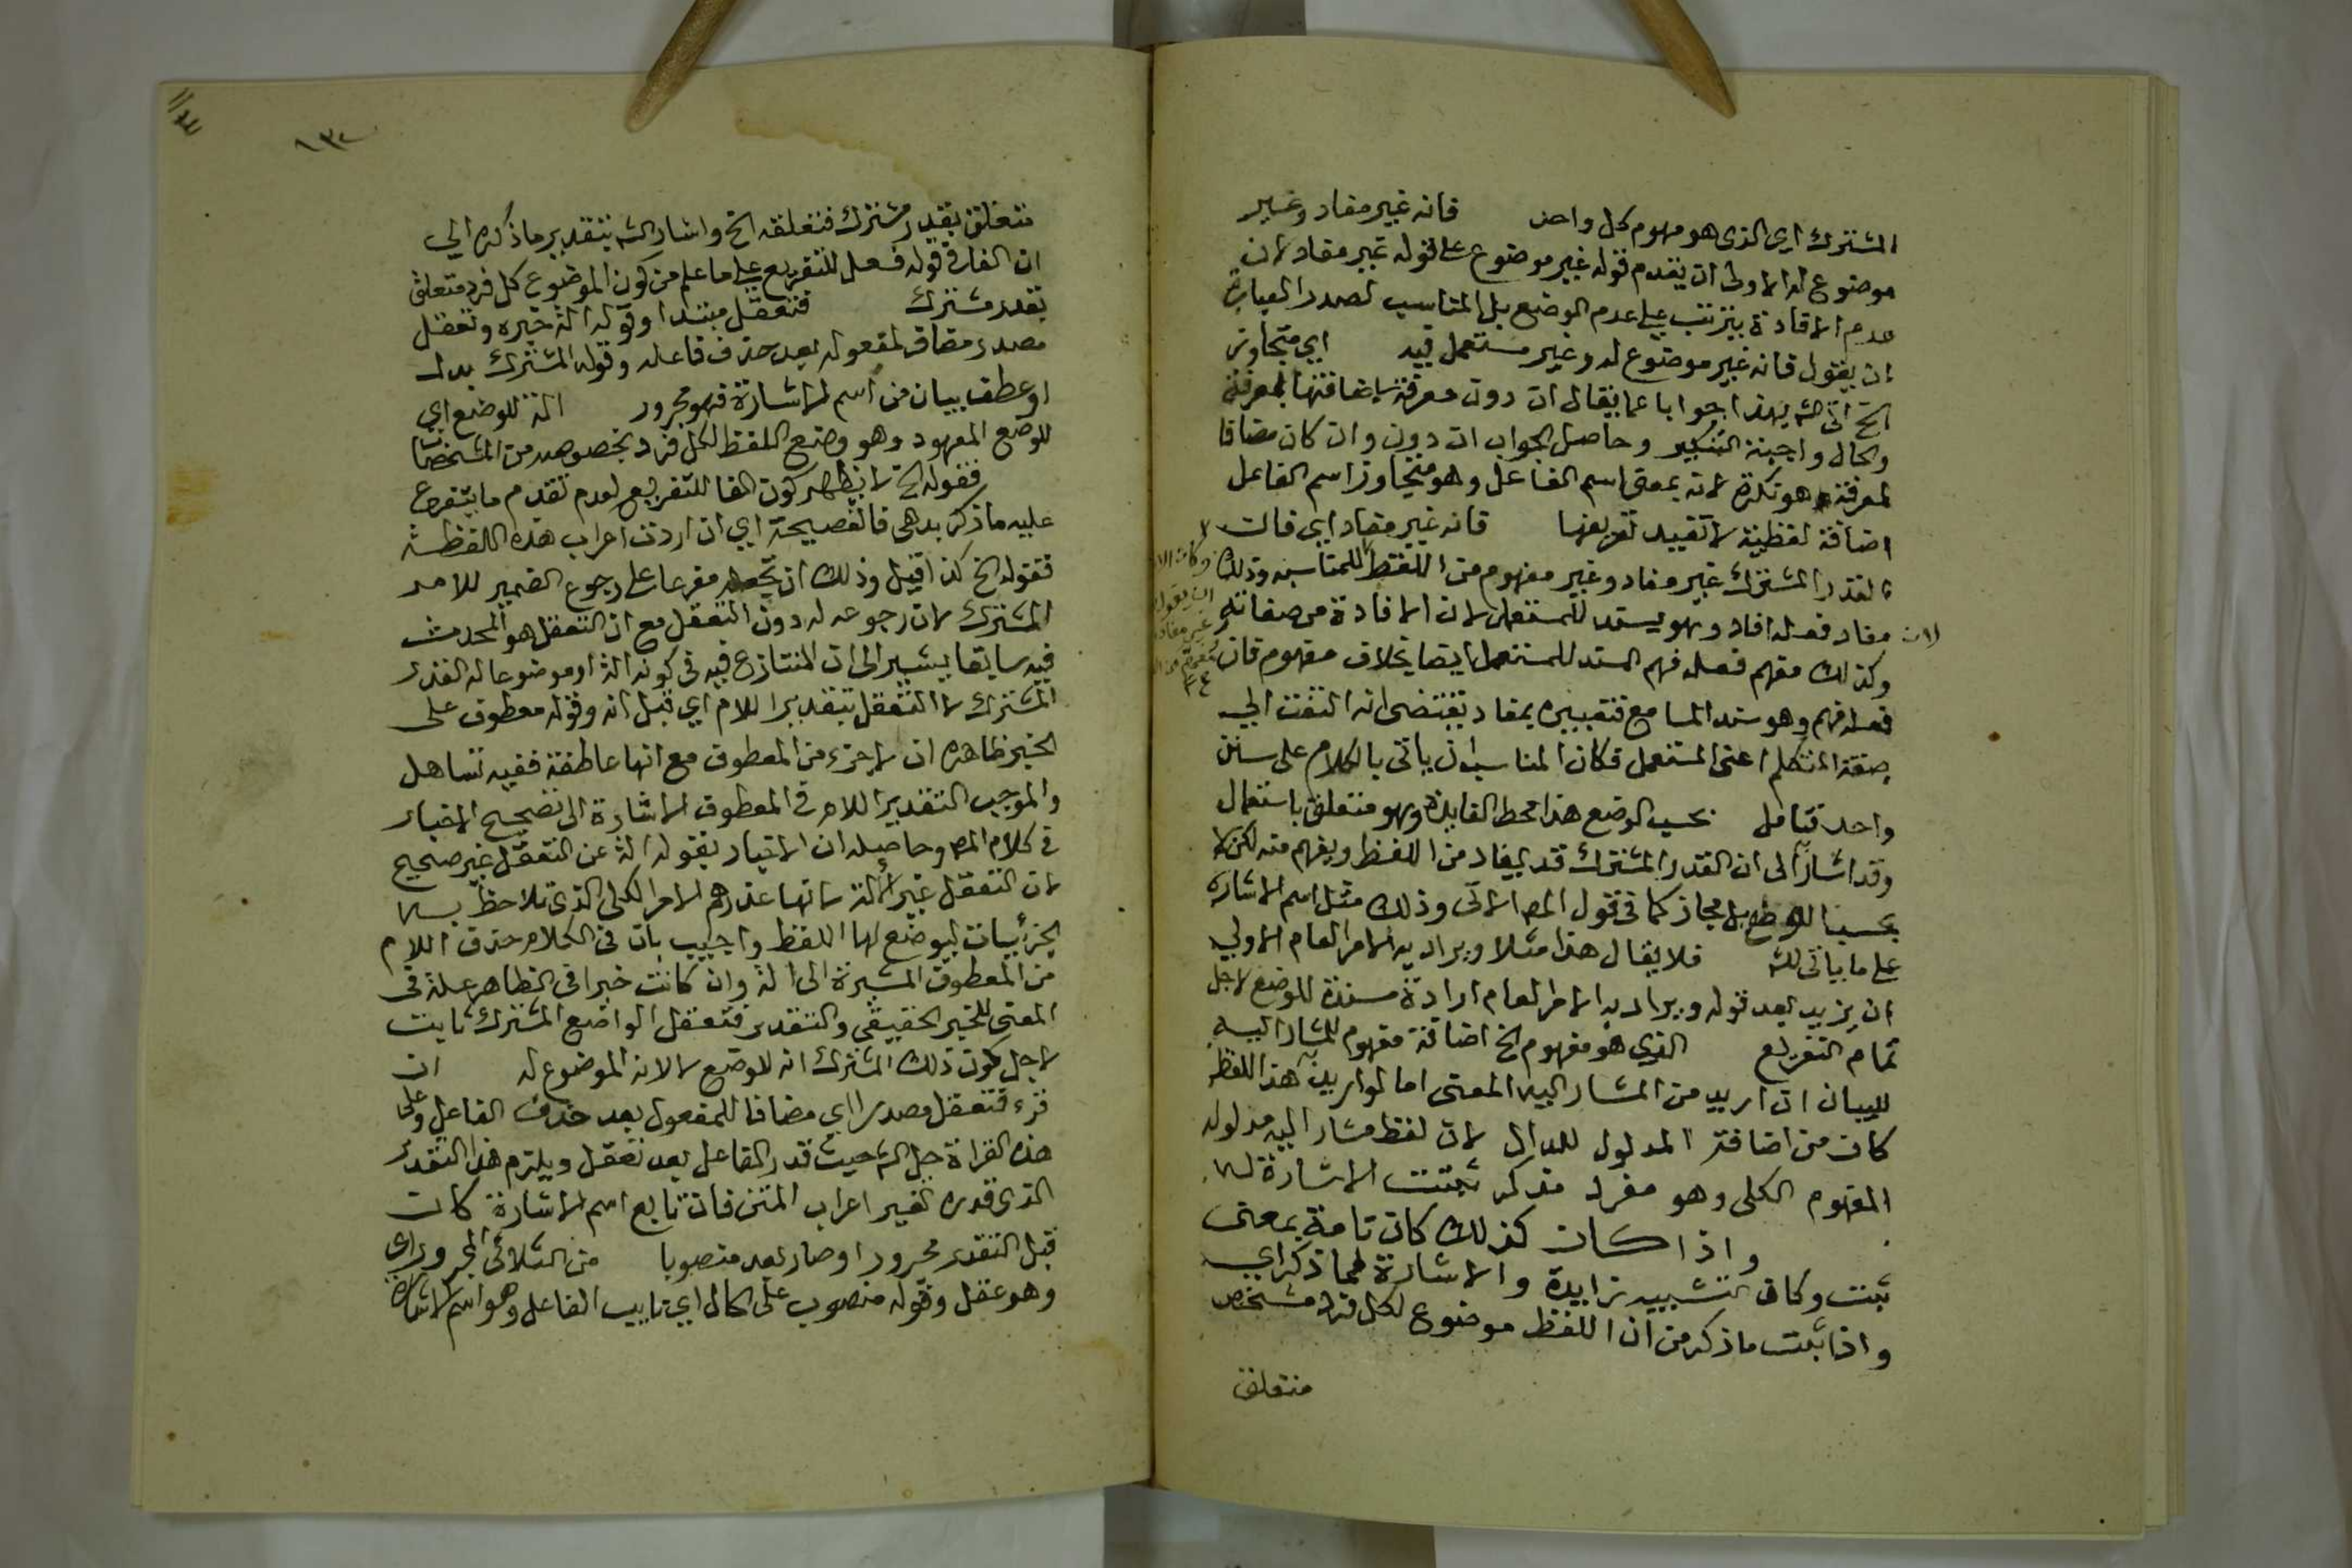 المشترك اي الذى هو مفهوم كل واحد فانه غير مفاد وغير
موضوع له الاولى ان يقدم قوله غير موضوع على قوله غير مفاد لان
عدم الافادة يترتب على عدم الوضع بل المناسب لصدر العبارة
ان يقول فانه غير موضوع له وغير مستعمل فيه اي متجاوز
الخ اتى الشه بهذا جوابا عما يقال ان دون معرفة باضافتها لمعرفة
والحال واجبة التنكير وحاصل الجواب ان دون وان كان مضافا
لمعرفة هو نكرة لانه بمعنى اسم الفاعل وهو متجاوز اسم الفاعل
اضافة لفظية لا تفيد تعريفها فانه غير مفاد اي فالـ
القدر المشترك غير مفاد وغير مفهوم من اللفظ المناسب وذلك
لان مفاد فعله افاد وهو يسند للمستعمل لان الافادة من صفاته
وكذلك مفهم فعله فهم المسند للمستعمل ايضا بخلاف مفهوم فان
فعله فهم وهو سند السامع فتعبيره بمفاد يقتضى انه التفت الي
صفة المتكلم اعنى المستعمل فكان المناسب ان ياتى بالكلام على سنن
واحد تامل بحسب الوضع هذا محط الفايدة وهو متعلق باستعمال
وقد اشار الى ان القدر المشترك قد يفاد من اللفظ ويفهم منه لكن لا
بحسب الوضع بل مجاز كما فى قول المص الاتى وذلك مثل اسم الاشارة
على ما ياتى للشه فلا يقال هذا مثلا ويراد به الامر العام الاولي
ان يزيد بعد قوله ويراد به الامر العام ارادة مسندة للوضع لاجل
تمام التفريع الذي هو مفهوم الخ اضافة مفهوم للمشار اليه
للبيان ان اريد من المشار اليه المعنى اما لو اريد به هذا اللفظ
كان من اضافة المدلول للدال لان لفظ مشار اليه مدلوله
المفهوم الكلى وهو مفرد مذكر ثبتت الاشارة لها
واذا كان كذلك كان تامة بمعنى
ثبت وكاف التشبيه زايدة والاشارة لما ذكر اي
واذا ثبت ما ذكر من ان اللفظ موضوع لكل فرد مشخص
متعلق
١٣
متعلق بقدر مشترك فتعلقه الخ واشار الشه بتقدير ما ذكره الي
ان الفا في قوله فعل للتفريع على ما علم من كون الموضوع كل فرد متعلق
بقدر مشترك فتعقل مبتدا وقوله الة خبره وتعقل
مصدر مضاف لمفعوله بعد حذف فاعله وقوله المشترك بدل
او عطف بيان من اسم الاشارة فهو مجرور الة للوضع اي
للوضع المعهود وهو وضع اللفظ لكل فرد بخصوصه من المشخصات
فقوله الخ لا يظهر كون الفا للتفريع لعدم تقدم ما يتفرع
عليه ما ذكر بد هى فا الفصيحة اي ان اردت اعراب هذه اللفظة
فقوله الخ كذا قيل وذلك ان تجعله مفرعا على رجوع الضمير للامر
المشترك لان رجوعه له دون التعقل مع ان التعقل هو المحدث
فيه سابقا يشير الى ان المتنازع فيه فى كونه الة او موضوعا له القدر
المشترك لا التعقل بتقدير اللام اي قبل انه وقوله معطوف على
الخبر ظاهره ان لا جزء من المعطوف مع انها عاطفة ففيه تساهل
والموجب التقدير اللام فى المعطوف الاشارة الى تصحيح الاخبار
فى كلام المص وحاصله ان الاخبار بقوله الة عن التعقل غير صحيح
لان التعقل غير الالة لانها عندهم الامر الكلى الذى تلاحظ به
الجزئيات ليوضع لها اللفظ واجيب بان فى الكلام حذف اللام
من المعطوف المشيرة الى الة وان كانت خبرا فى الظاهر علة فى
المعنى للخبر الحقيقى والتقدير فتعقل الواضع المشترك ثابت
لاجل كون ذلك المشترك الة للوضع لا لانه الموضوع له ان
قرء فتعقل مصدرا اي مضافا للمفعول بعد حذف الفاعل وعلى
هذه القراة حل الشه حيث قدر الفاعل بعد تعقل ويلزم هذا التقدير
الذى قدره تغير اعراب المتن فان تابع اسم الاشارة كان
قبل التقدير مجرورا وصار بعد منصوبا من الثلاثى المجرور اي
وهو عقل وقوله منصوب على الحال اي نايب الفاعل وهو اسم الاشارة